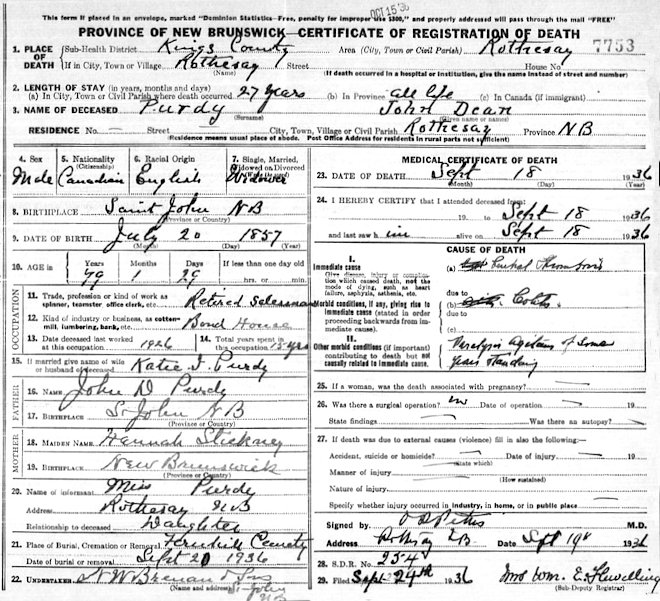 This form if placed in an envelope, marked "Dominion Statistics—Free, penalty for improper use $300," and properly addressed will pass through the mail "FREE"
OCT 15 '36
PROVINCE OF NEW BRUNSWICK—CERTIFICATE OF REGISTRATION OF DEATH
7753
1. PLACE OF DEATH (Sub-Health District Kings County Area (City, Town or Civil Parish) Rothesay
If in City, Town or Village Rothesay (Name) Street House No.
(If death occurred in a hospital or institution, give the name instead of street and number)
2. LENGTH OF STAY (in years, months and days)
(a) In City, Town or Civil Parish where death occurred 27 years (b) In Province all life (c) In Canada (if immigrant)
3. NAME OF DECEASED Purdy (Surname) John Dean (Given name or names)
RESIDENCE No. — Street — City, Town, Village or Civil Parish Rothesay Province NB
(Residence means usual place of abode. Post Office Address for residents in rural parts not sufficient)
4. Sex Male
5. Nationality (Citizenship) Canadian
6. Racial Origin English
7. Single, Married, Widowed or Divorced Widower
8. BIRTHPLACE Saint John NB (Province or Country)
9. DATE OF BIRTH July (Month) 20 (Day) 1857 (Year)
10. AGE in Years 79 Months 1 Days 29 If less than one day old hrs. or min.
OCCUPATION
11. Trade, profession or kind of work as spinner, teamster office clerk, etc. Retired Salesman
12. Kind of industry or business, as cotton-mill, lumbering, bank, etc. Bond House
13. Date deceased last worked at this occupation. 1926
14. Total years spent in this occupation 15 yrs
15. If married give name of wife or husband of deceased Katie J. Purdy
FATHER
16. NAME John D Purdy
17. BIRTHPLACE St John NB (Province or Country)
MOTHER
18. MAIDEN NAME Hannah Stickney
19. BIRTHPLACE New Brunswick (Province or Country)
20. Name of informant Miss Purdy
Address Rothesay NB
Relationship to deceased Daughter
21. Place of Burial, Cremation or Removal Fernhill Cemetery
Date of burial or removal Sept 20 1936
22. UNDERTAKER N W Brenan & Sons
(Name and address) St John NB
MEDICAL CERTIFICATE OF DEATH
23. DATE OF DEATH Sept (Month) 18 (Day) 1936 (Year)
24. I HEREBY CERTIFY that I attended deceased from:
19 to Sept 18 1936
and last saw him alive on Sept 18 1936
CAUSE OF DEATH
I.
Immediate cause
Give disease, injury or complication which caused death, not the mode of dying, such as heart failure, asphyxia, asthenia, etc.
(a) Cerebral Thrombosis
Morbid conditions, if any, giving rise to immediate cause (stated in order proceeding backwards from immediate cause).
due to
(b)
due to
(c)
II.
Other morbid conditions (if important) contributing to death but not causally related to immediate cause.
Paralysis Agitans of some
years standing
25. If a woman, was the death associated with pregnancy?
26. Was there a surgical operation? no Date of operation 19
State findings Was there an autopsy?
27. If death was due to external causes (violence) fill in also the following:—
Accident, suicide or homicide? (State which) Date of injury 19
Manner of injury (How sustained)
Nature of injury
Specify whether injury occurred in industry, in home, or in public place
Signed by M.D.
Address Rothesay NB Date Sept 19th 1936
28. S.D.R. No. 254
29. Filed Sept 24th 1936 Mrs Wm. E. Flewelling
(Sub-Deputy Registrar)